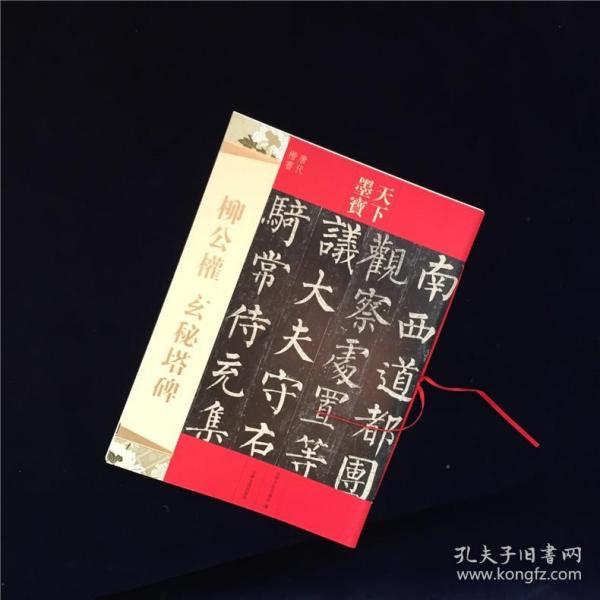 唐代
楷書
天下
墨寶
柳公權 玄秘塔碑
南西道都團
觀察處置等
議大夫守右
騎常侍充集
孔夫子旧书网
www.kongfz.com